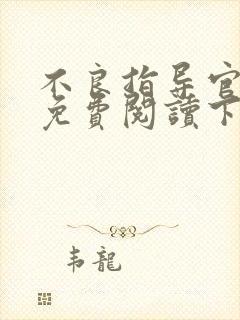 不良指导官
免費閱讀下
韦龍